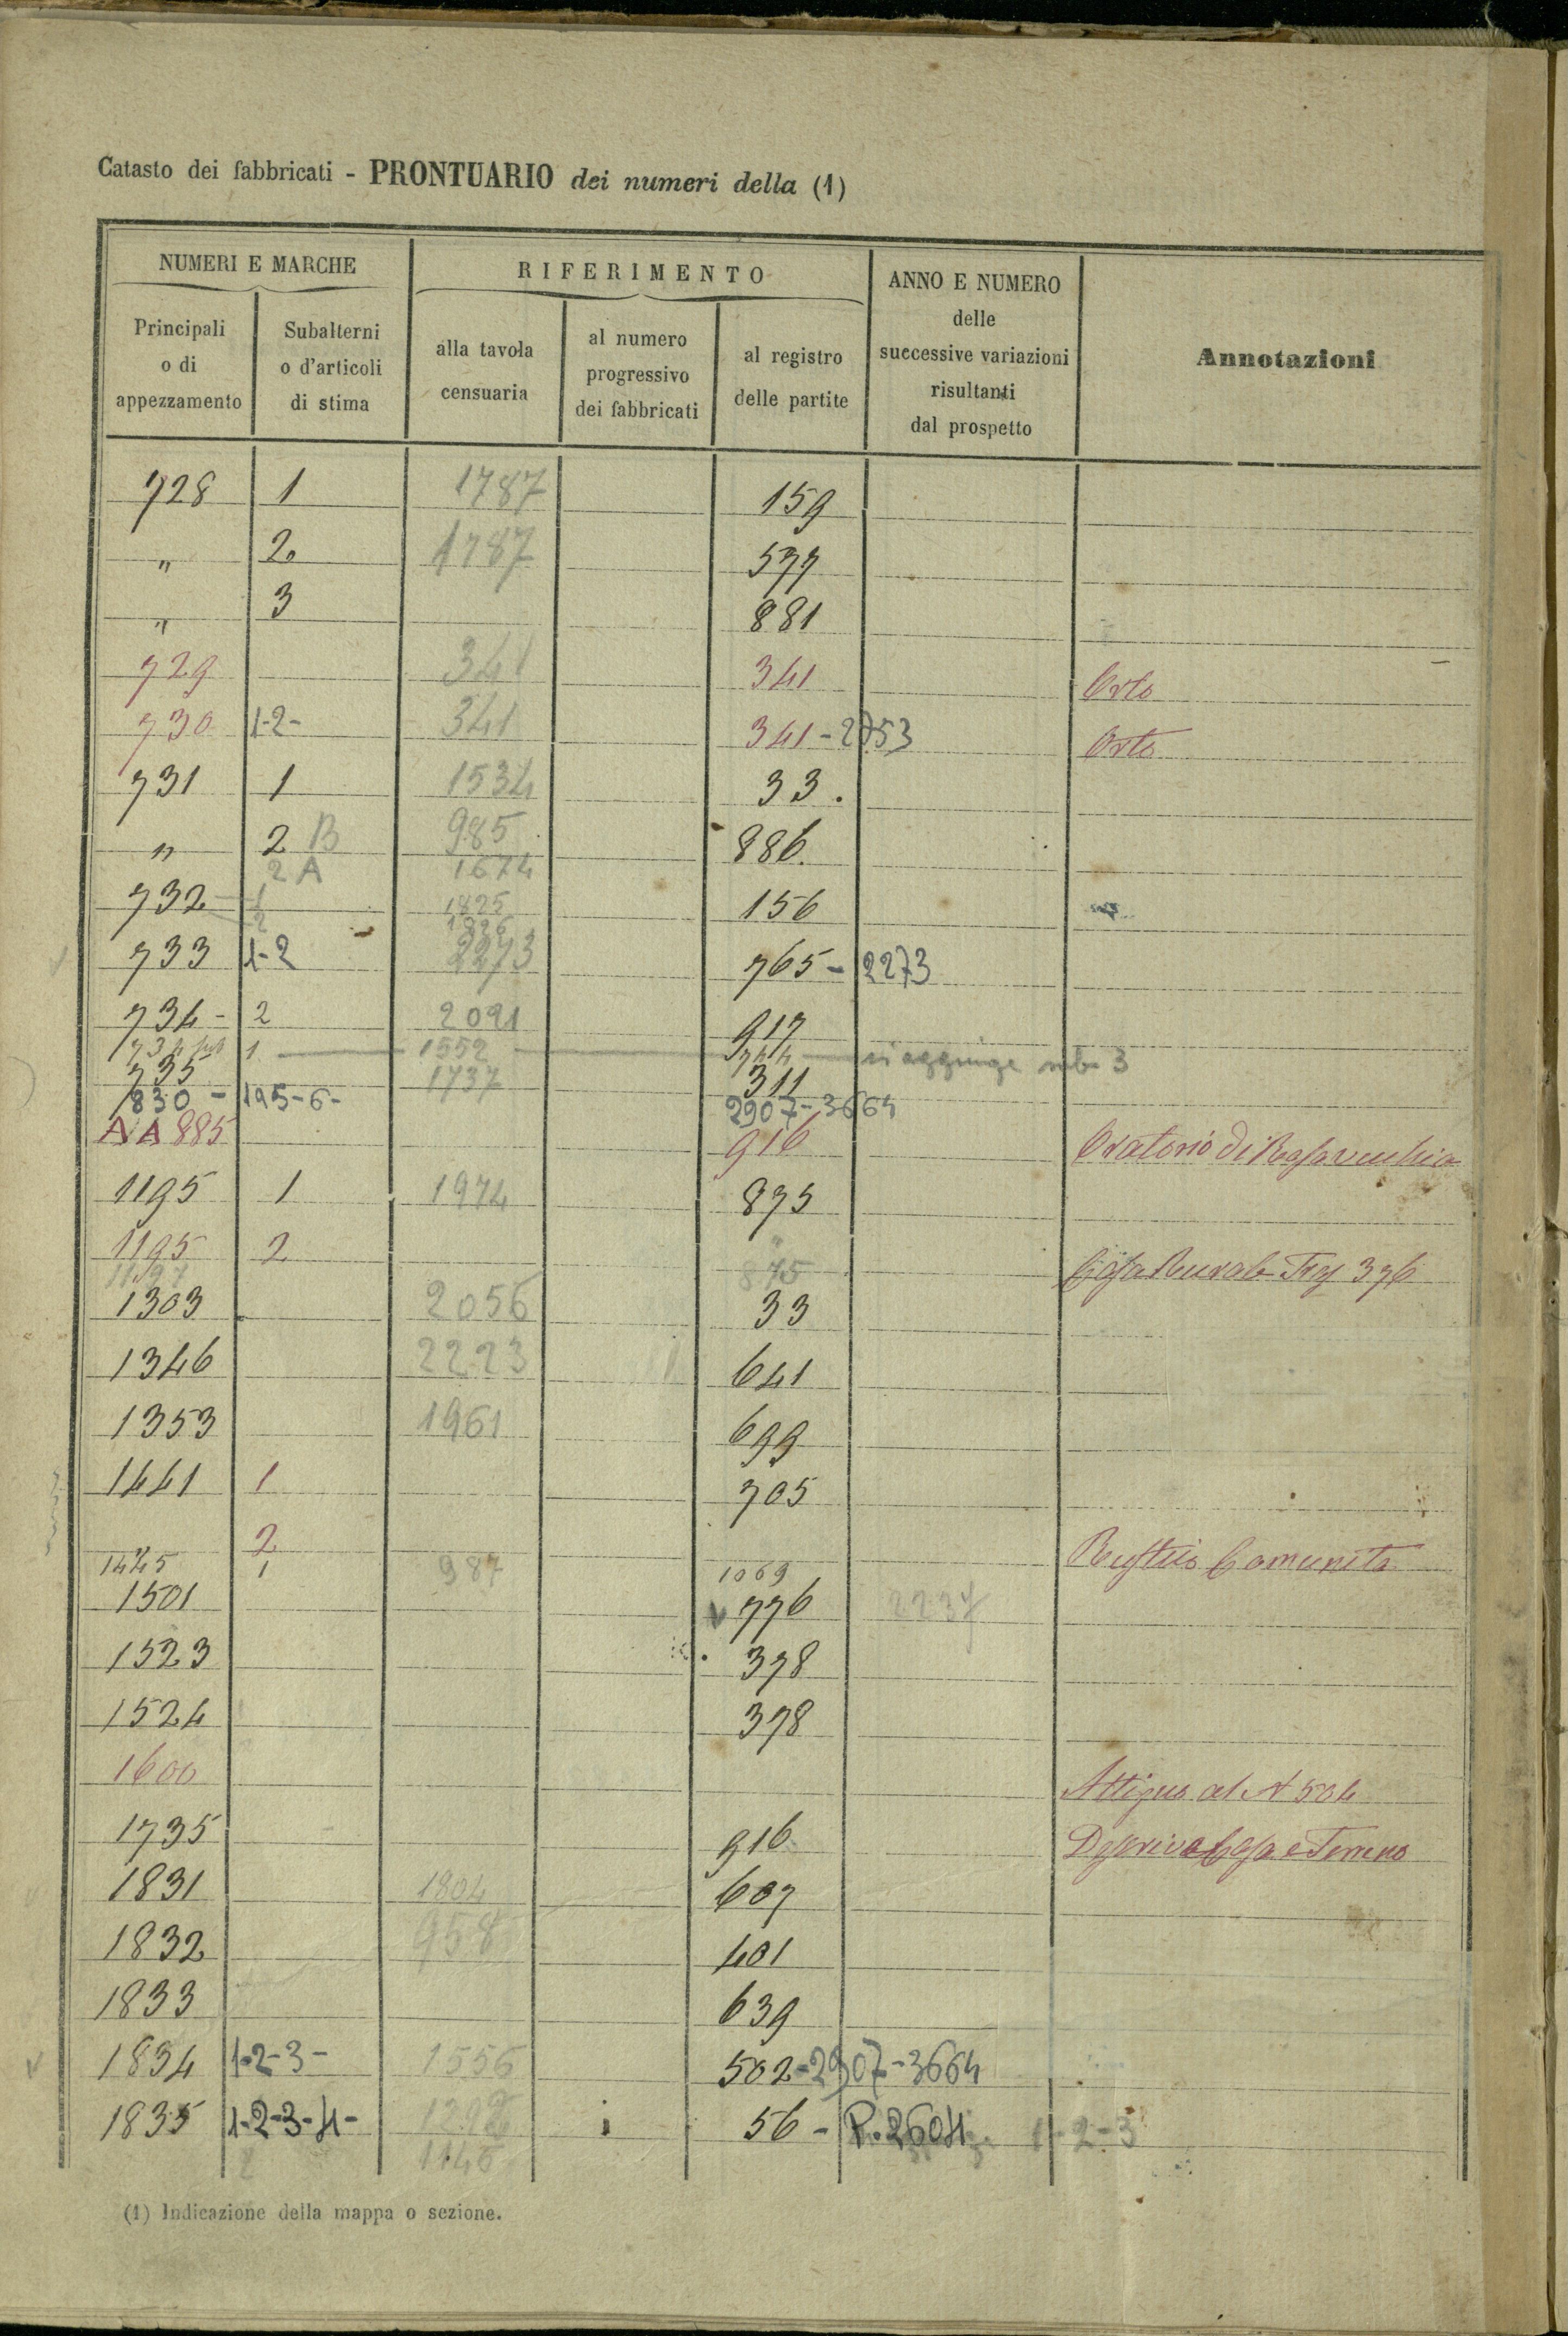 Catasto dei fabbricati - PRONTUARIO dei numeri della (1)
NUMERI E MARCHE
RIFERIMENTO
ANNO E NUMERO
delle
successive variazioni
risultanti
dal prospetto
Annotazioni
Principali
o di
appezzamento
Subalterni
o d'articoli
di stima
alla tavola
censuaria
al numero
progressivo
dei fabbricati
al registro
delle partite
728 1 1787 159
" 2 1787 577
" 3 881
729 341 341 Orto
730 1-2- 341 341-2753 Orto
731 1 1534 33.
" 2 B 985 886.
2 A 1674
732 1 1825 156
2 1826
733 1-2 2273 765-2273
734- 2 2091 917
734 1 1552 744 si aggiunge sub 3
735 1737 311
830- 195-6- 2907-3664
A A 885 916 Oratorio di Casavecchia
1195 1 1974 875
1195 2 " Casa Rurale 376
1197 875
1303 2056 33
1346 2223 641
1353 1961 699
1441 1 705
" 2 Rustico Comunita
1445 1 987 1069
1501 776 2237
1523 378
1524 378
1600 Attiguo al N 504
1735 916 Casa e Terreno
1831 1804 607
1832 958 401
1833 639
1834 1-2-3- 1556 502-2907-3664
1835 1-2-3-4- 1292 56- P.2604. 1-2-3
2 1146
(1) Indicazione della mappa o sezione.